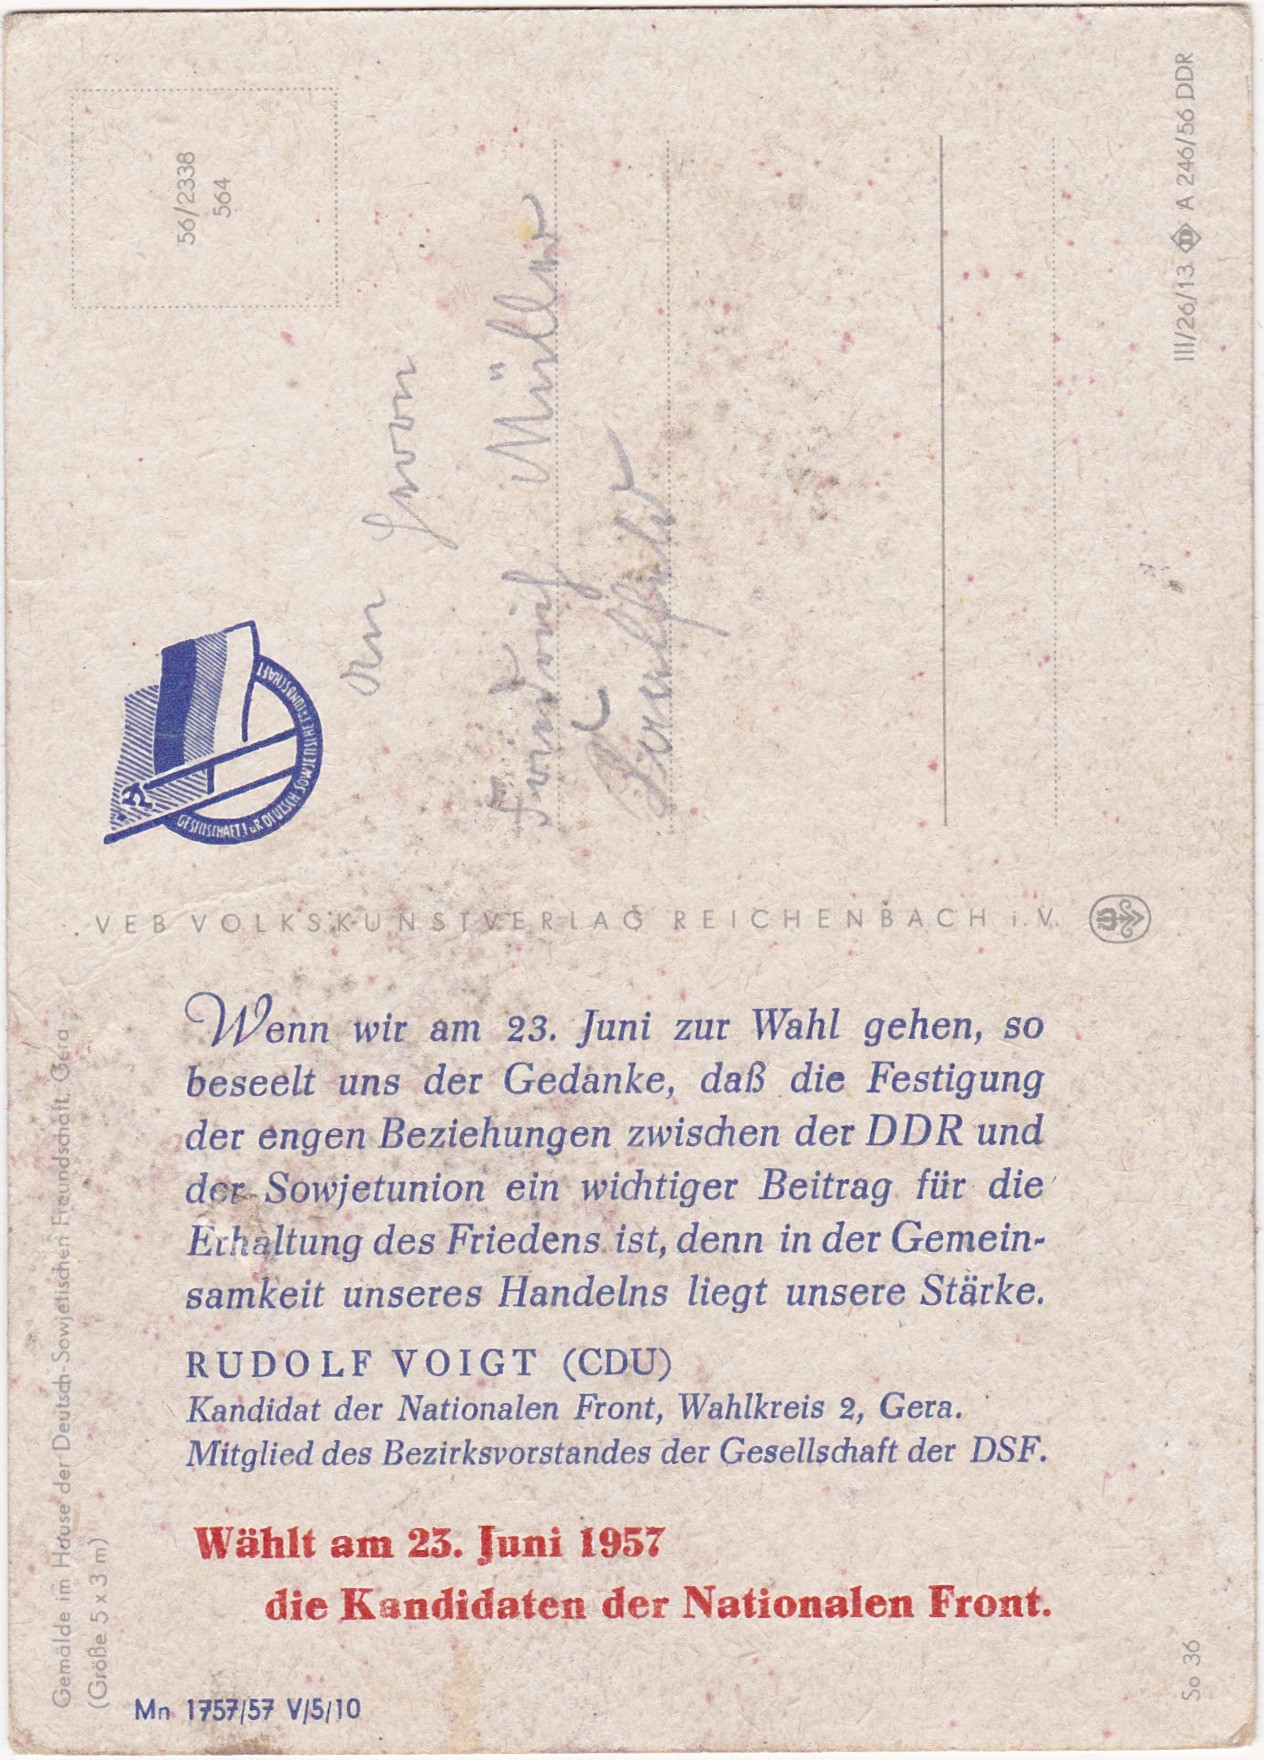 56/2338
564
III/26/13 A 246/56 DDR
An Herrn
Friedrich Müller
GESELLSCHAFT FÜR DEUTSCH-SOWJETISCHE FREUNDSCHAFT
VEB VOLKSKUNSTVERLAG REICHENBACH i. V.
Gemälde im Hause der Deutsch-Sowjetischen Freundschaft, Gera
(Größe 5 x 3 m)
Wenn wir am 23. Juni zur Wahl gehen, so
beseelt uns der Gedanke, daß die Festigung
der engen Beziehungen zwischen der DDR und
der Sowjetunion ein wichtiger Beitrag für die
Erhaltung des Friedens ist, denn in der Gemein-
samkeit unseres Handelns liegt unsere Stärke.
RUDOLF VOIGT (CDU)
Kandidat der Nationalen Front, Wahlkreis 2, Gera.
Mitglied des Bezirksvorstandes der Gesellschaft der DSF.
Wählt am 23. Juni 1957
die Kandidaten der Nationalen Front.
So 36
Mn 1757/57 V/5/10